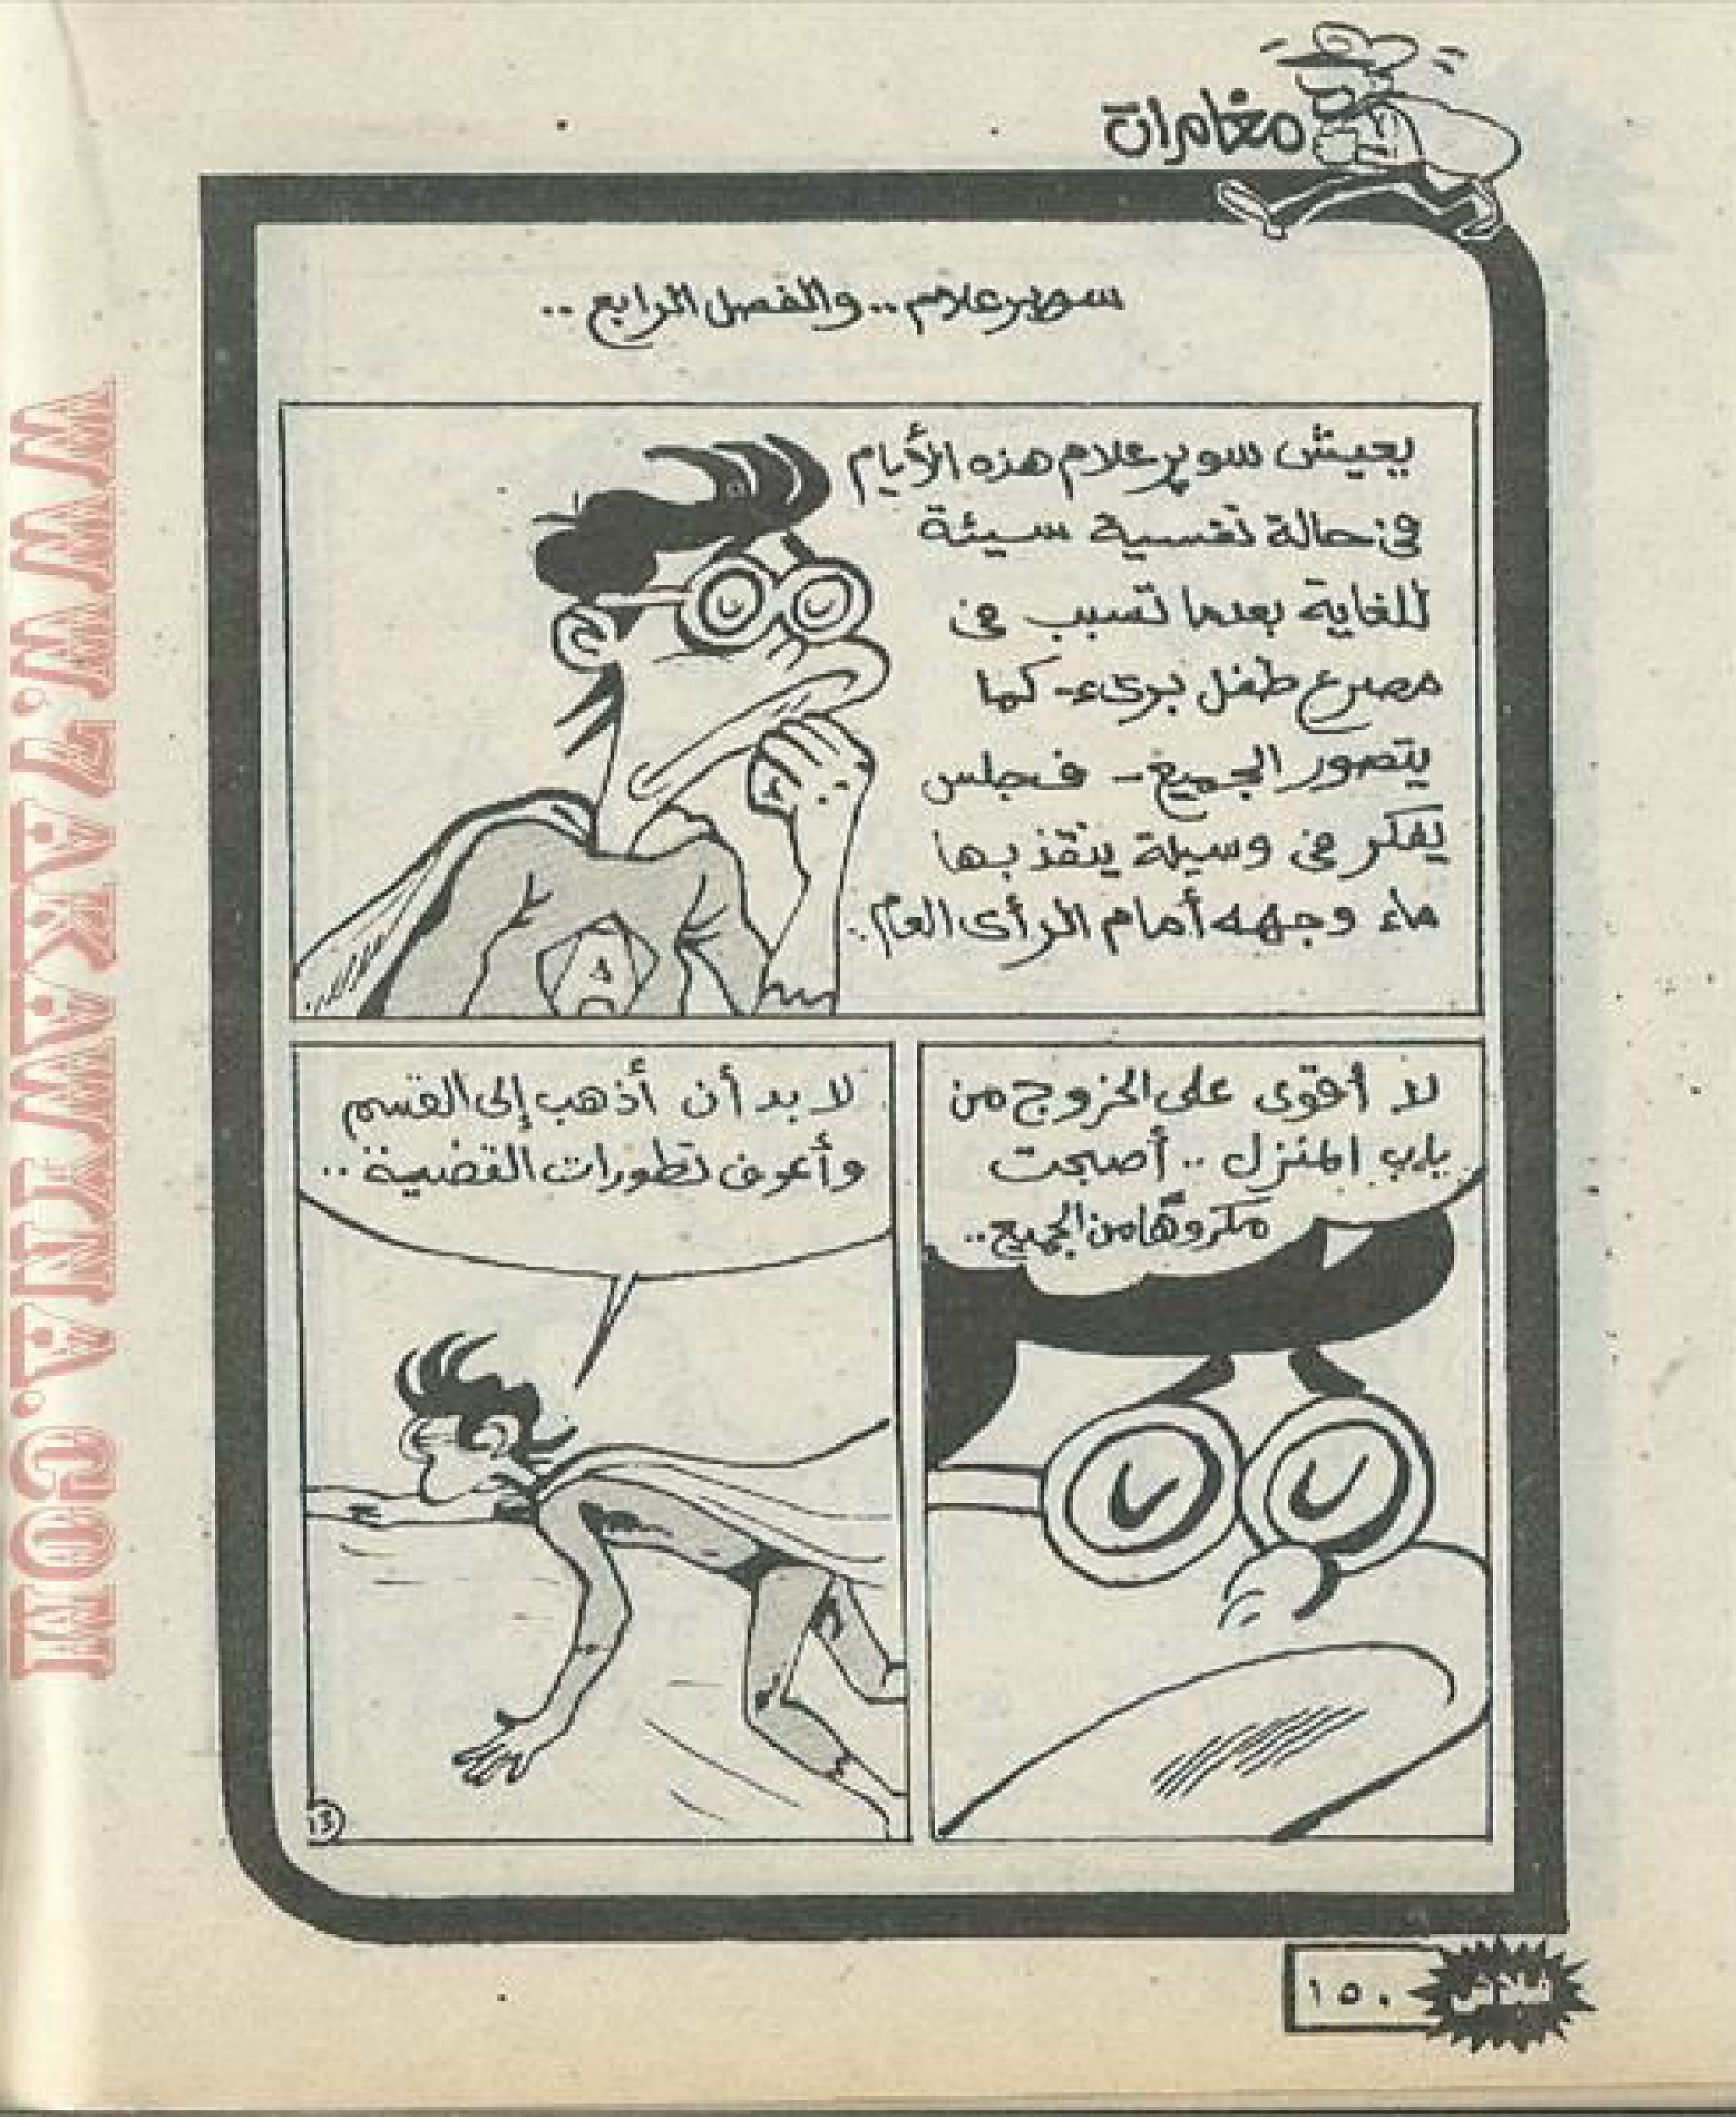 مغامرات
سوبر علام .. والفصل الرابع ..
يعيش سوپر علام هذه الأيام
فى حالة نفسية سيئة
للغاية بعدما تسبب فى
مصرع طفل برىء - كما
يتصور الجميع - فجلس
يفكر فى وسيلة ينقذ بها
ماء وجهه أمام الرأى العام..
لا أقوى على الخروج من
باب المنزل .. أصبحت
مكروهًا من الجميع ..
لا بد أن أذهب إلى القسم
وأعرف تطورات القضية ..
فلاش
١٥٠
WWW.7AKAWYNA.COM